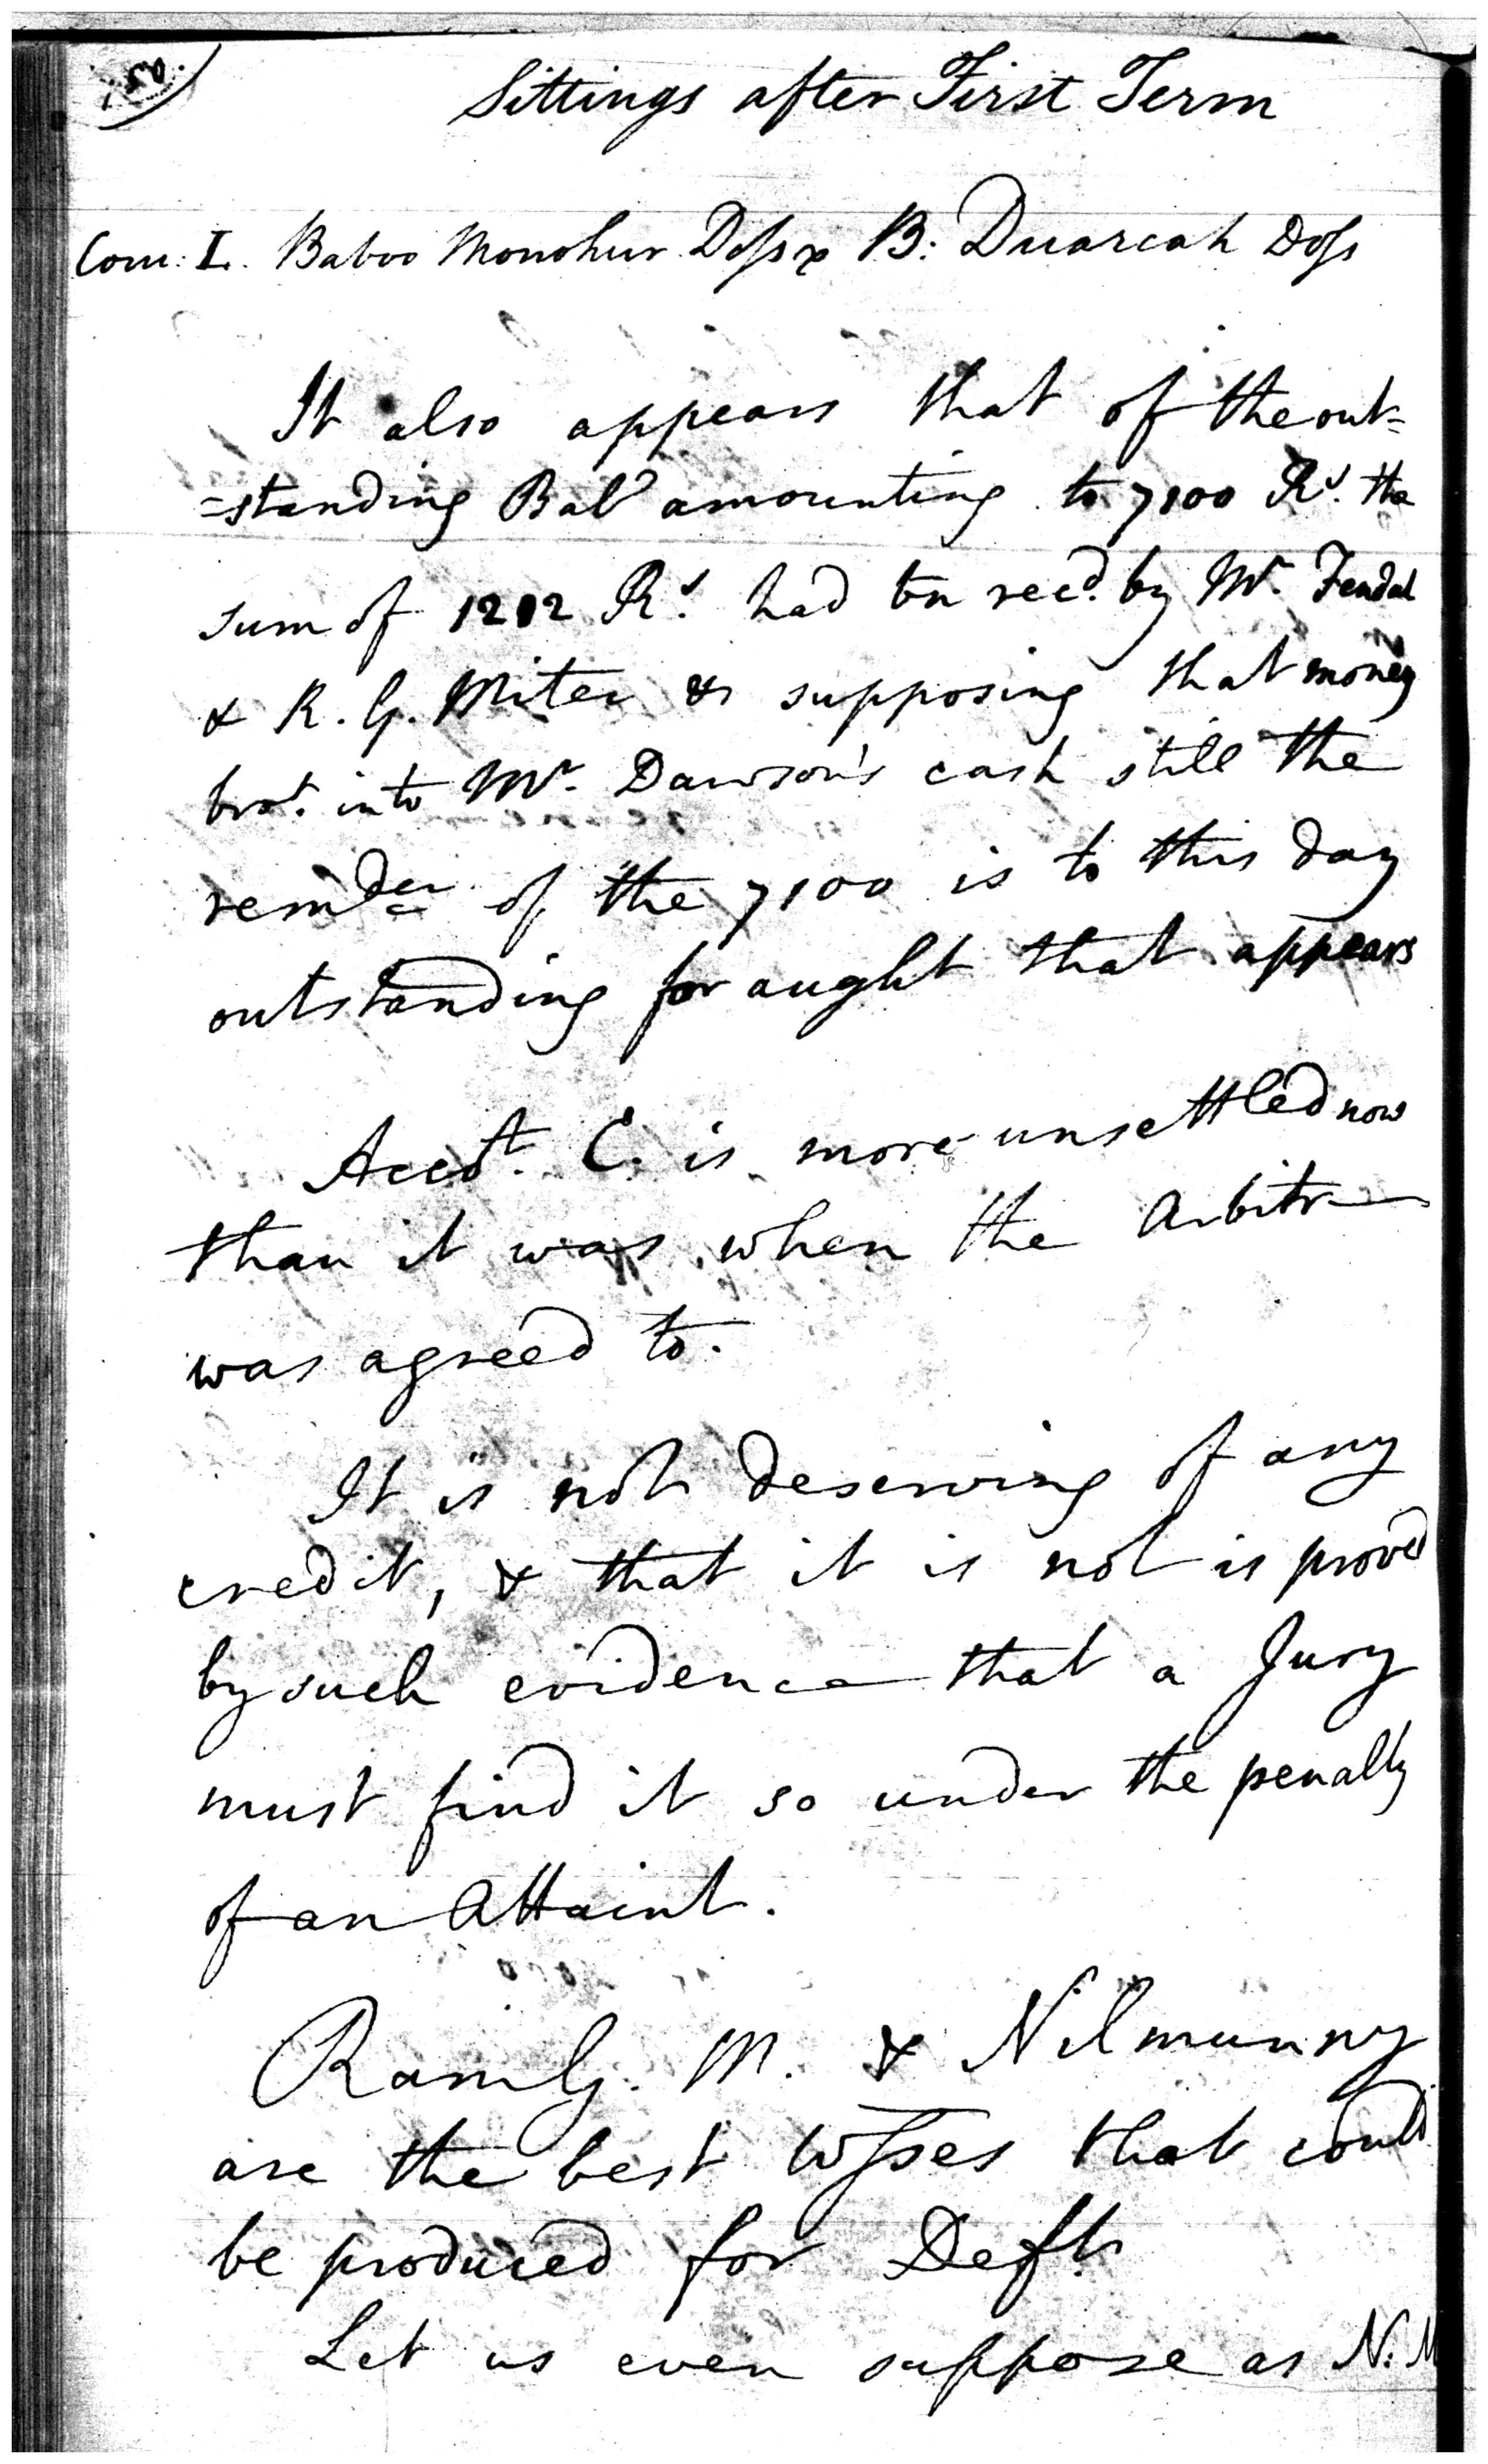 Sittings after First Term
Com: I. Baboo Monohur Doss v B: Duarcah Doss
It also appears that of the out=
=standing Bal.e amounting to 7100 Rs. the
sum of 1202 Rs. had bn recd. by Mr. Fendal
& R. G. Miter & supposing that money
brot. into Mr. Dawson's cash still the
remder of the 7100 is to this day
outstanding for aught that appears
Accot. C. is more unsettled now
than it was when the Arbitr
was agreed to.
It is not deserving of any
credit, & that it is not is proved
by such evidence that a Jury
must find it so under the penalty
of an Attaint.
Ram G. M. & Nilmunny
are the best Wsses that could
be produced for Deft.
Let us even suppose as N. M